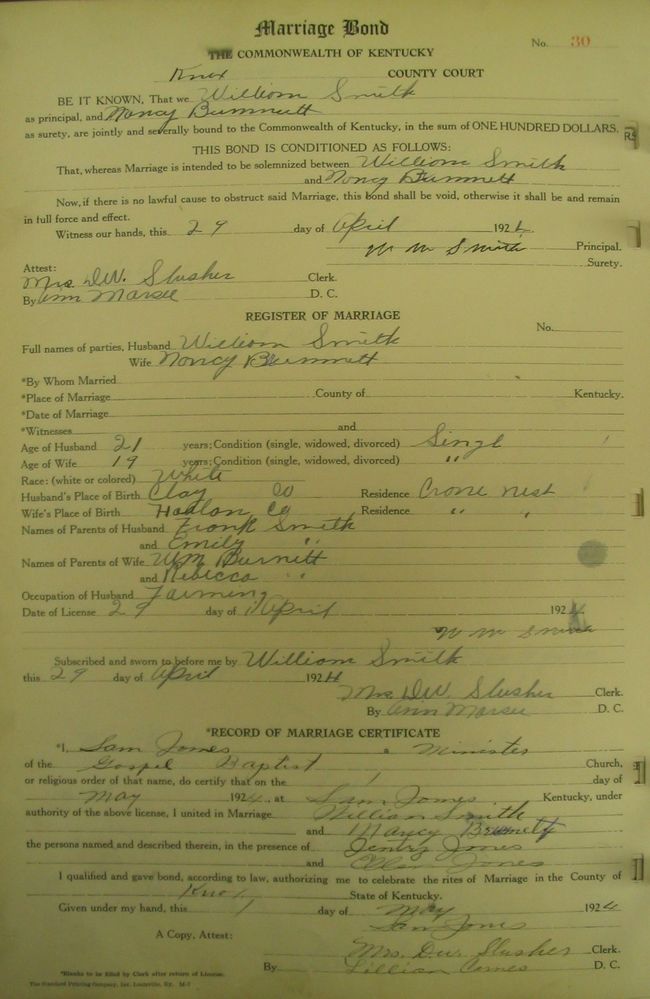 Marriage Bond
No. 30
THE COMMONWEALTH OF KENTUCKY
Knox COUNTY COURT
BE IT KNOWN, That we William Smith
as principal, and Nancy Bunnett
as surety, are jointly and severally bound to the Commonwealth of Kentucky, in the sum of ONE HUNDRED DOLLARS.
THIS BOND IS CONDITIONED AS FOLLOWS:
That, whereas Marriage is intended to be solemnized between William Smith
and Nancy Bunnett
Now, if there is no lawful cause to obstruct said Marriage, this bond shall be void, otherwise it shall be and remain
in full force and effect.
Witness our hands, this 29 day of April 1924.
W M Smith Principal.
Surety.
Attest:
Mrs. D.W. Slusher Clerk.
By Ann Marsee D. C.
REGISTER OF MARRIAGE
No.
Full names of parties, Husband William Smith
Wife Nancy Bunnett
*By Whom Married
*Place of Marriage County of Kentucky.
*Date of Marriage
*Witnesses and
Age of Husband 21 years; Condition (single, widowed, divorced) Singl
Age of Wife 19 years; Condition (single, widowed, divorced) "
Race: (white or colored) White
Husband's Place of Birth Clay Co Residence Crone nest
Wife's Place of Birth Haalan Co Residence " "
Names of Parents of Husband Frank Smith
and Emily "
Names of Parents of Wife WM Burnett
and Rebecca "
Occupation of Husband Farming
Date of License 29 day of April 1924
W M Smith
Subscribed and sworn to before me by William Smith
this 29 day of April 1924
Mrs. D.W. Slusher Clerk.
By Ann Marsee D. C.
*RECORD OF MARRIAGE CERTIFICATE
*I, Sam Jones a Minister
of the Gospel Baptist Church,
or religious order of that name, do certify that on the 1 day of
May 1924, at Sam Jones, Kentucky, under
authority of the above license, I united in Marriage William Smith
and Nancy Brunett
the persons named and described therein, in the presence of Gentry Jones
and Ellen Jones
I qualified and gave bond, according to law, authorizing me to celebrate the rites of Marriage in the County of
Knox State of Kentucky.
Given under my hand, this 1 day of May 1924
Sam Jones
A Copy, Attest:
Mrs. D.W. Slusher Clerk.
By Lillian Comes D. C.
*Blanks to be filled by Clerk after return of License.
The Standard Printing Company, Inc. Louisville, Ky. M-7